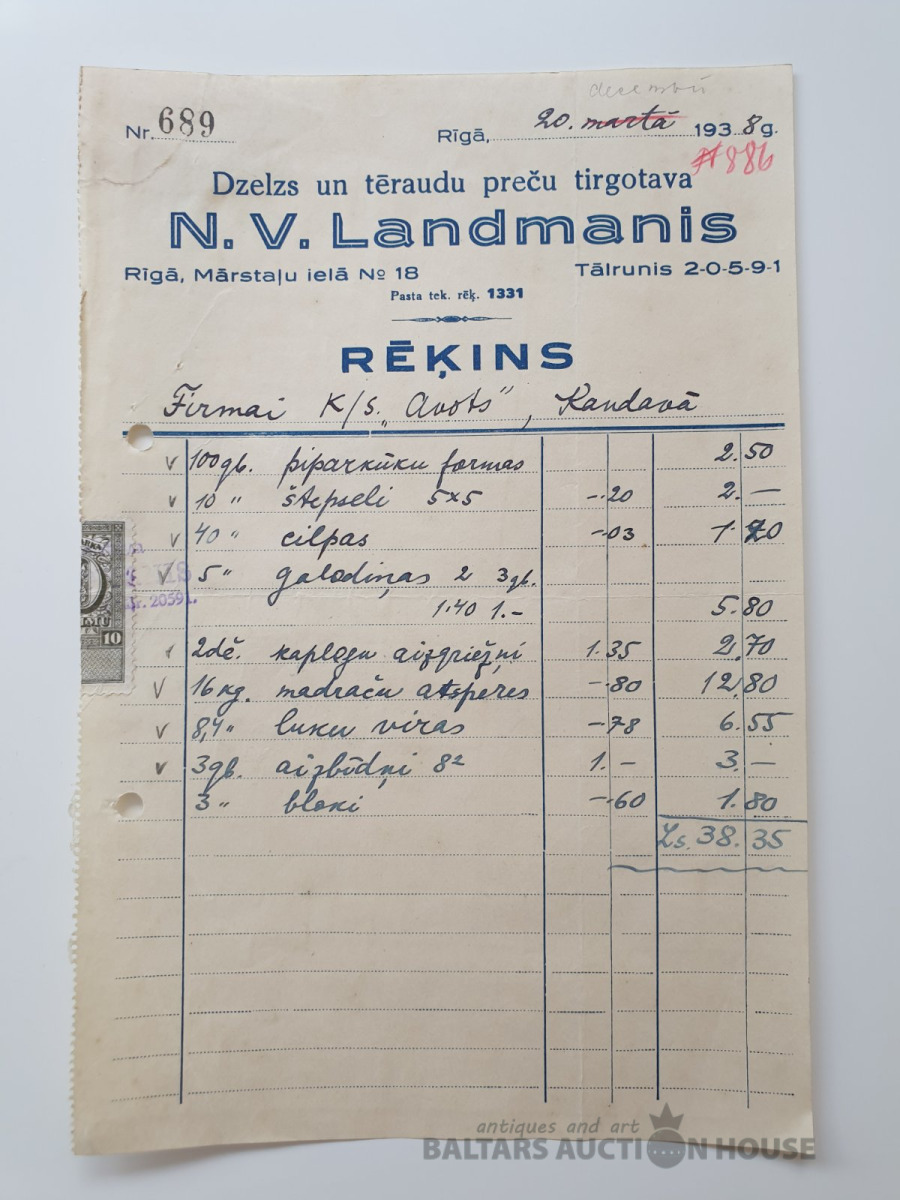 decembrī
Nr. 689 Rīgā, 20. martā 1938 g.
#886
Dzelzs un tēraudu preču tirgotava
N. V. Landmanis
Rīgā, Mārstaļu ielā № 18 Tālrunis 2-0-5-9-1
Pasta tek. rēķ. 1331
RĒĶINS
Firmai K/s. „Avots", Kandavā
v 100gb. piparkūku formas 2.50
v 10 " štepseli 5x5 -.20 2.—
v 40 " cilpas -.03 1.20
v 5 " galodiņas 2 3gb.
1.40 1.- 5.80
v 2dē. kaplogu aizgriežņi 1.35 2.70
v 16kg. madraču atsperes -.80 12.80
v 8,4 " luku viras -.78 6.55
v 3gb. aizbīdņi 8² 1.- 3.—
3 " bloki -.60 1.80
Ls. 38.35
10
20591.
antiques and art
BALTARS AUCTION HOUSE